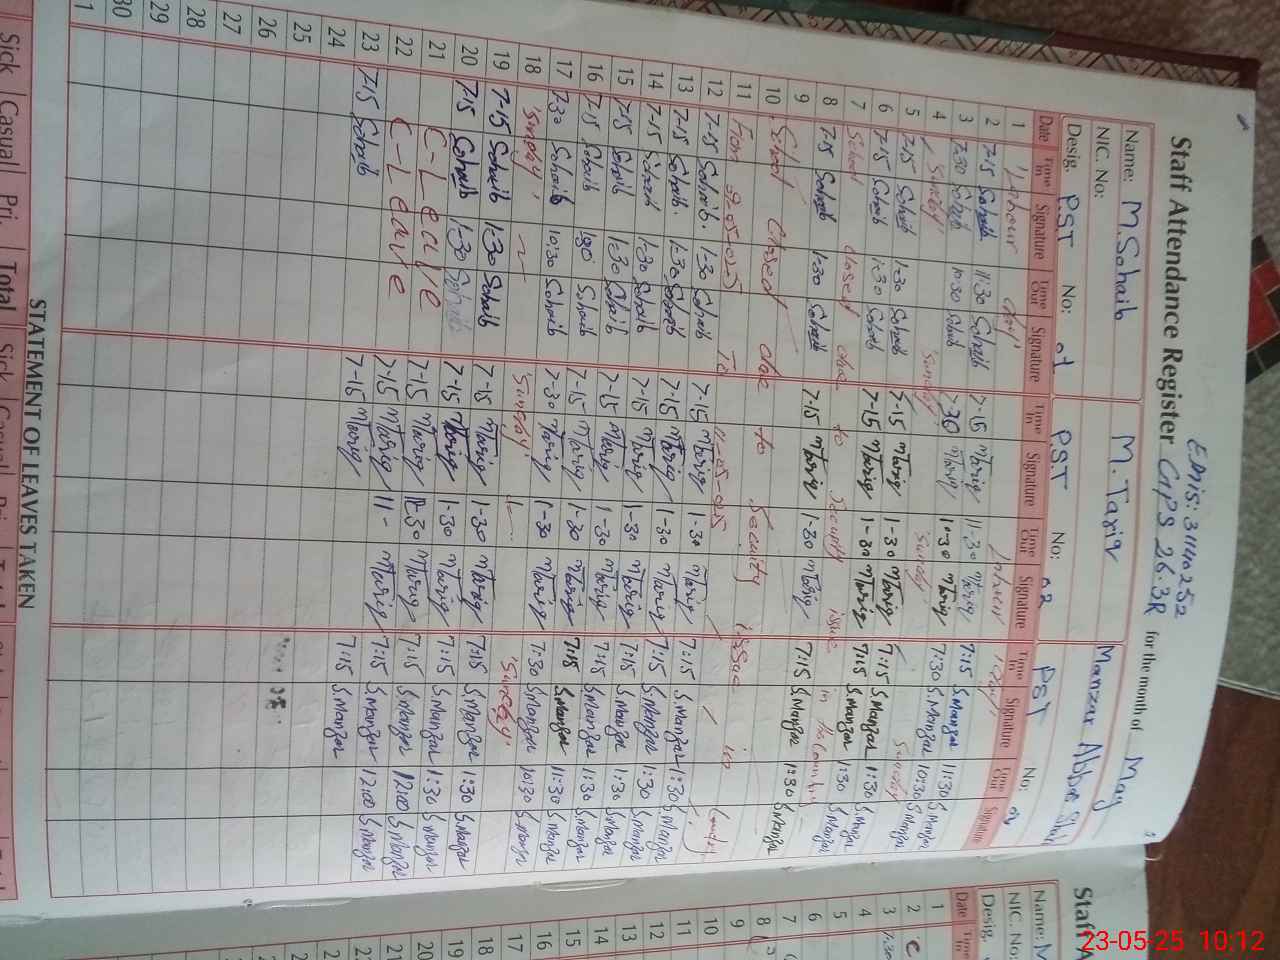 EMIS: 31110252
Staff Attendance Register GPS 26.3R for the month of May
Name: M.Sohaib M. Tariq Manzar Abbas Shah
NIC. No:
Desig. PST No: 01 PST No: 02 PST No:
Date Time In Signature Time Out Signature Time In Signature Time Out Signature Time In Signature Time Out Signature
1 Labour day
2 7-15 Sohaib 11:30 Sohaib 7-15 MTariq 11-30 MTariq 7:15 S.Manzar 11:30 S.Manzar
3 7:30 Sohaib 10:30 Sohaib 7-30 MTariq 10-30 MTariq 7:30 S.Manzar 10:30 S.Manzar
4 Sunday Sunday Sunday Sunday
5 7-15 Sohaib 1:30 Sohaib 7-15 MTariq 1-30 MTariq 7:15 S.Manzar 1:30 S.Manzar
6 7-15 Sohaib 1:30 Sohaib 7-15 MTariq 1-30 MTariq 7:15 S.Manzar 1:30 S.Manzar
7 School closed due to Security issue in the Country
8 7-15 Sohaib 1-30 Sohaib 7-15 MTariq 1-30 MTariq 7:15 S.Manzar 1:30 S.Manzar
9 School closed due to Security issue in
10 From 9-05-025 To 11-05-025
11
12 7-15 Sohaib. 1-30 Sohaib 7-15 MTariq 1-30 MTariq 7:15 S.Manzar 1:30 S.Manzar
13 7-15 Sohaib. 1-30 Sohaib 7-15 MTariq 1-30 MTariq 7:15 S.Manzar 1:30 S.Manzar
14 7-15 Sohaib 1:30 Sohaib 7-15 MTariq 1-30 MTariq 7:15 S.Manzar 1:30 S.Manzar
15 7-15 Sohaib 1:30 Sohaib 7-15 MTariq 1-30 MTariq 7:15 S.Manzar 1:30 S.Manzar
16 7-15 Sohaib Sohaib 7-15 MTariq 1-30 MTariq 7:15 S.Manzar 11:30 S.Manzar
17 7:30 Sohaib 10:30 Sohaib 7-30 MTariq 1-30 MTariq 7:30 S.Manzar 10:30 S.Manzar
18 Sunday Sunday Sunday
19 7-15 Sohaib 1:30 Sohaib 7-15 MTariq 1-30 MTariq 7:15 S.Manzar 1:30 S.Manzar
20 7-15 Sohaib 1:30 Sohaib 7-15 MTariq 1-30 MTariq 7:15 S.Manzar 1:30 S.Manzar
21 C-Leave 7-15 MTariq MTariq 7:15 S.Manzar 12:00 S.Manzar
22 C-Leave 7-15 MTariq 11- MTariq 7:15 S.Manzar 12:00 S.Manzar
23 7-15 Sohaib 7-15 MTariq 7:15 S.Manzar
24
25
26
27
28
29
30
STATEMENT OF LEAVES TAKEN
Sick Casual Pri. Total Sick
Name: M
NIC. No:
Desig.
Date Time In
1
2
3
4
5
6
7
8
9
10
11
12
13
14
15
16
17
18
19
20
21
23-05-25 10:12